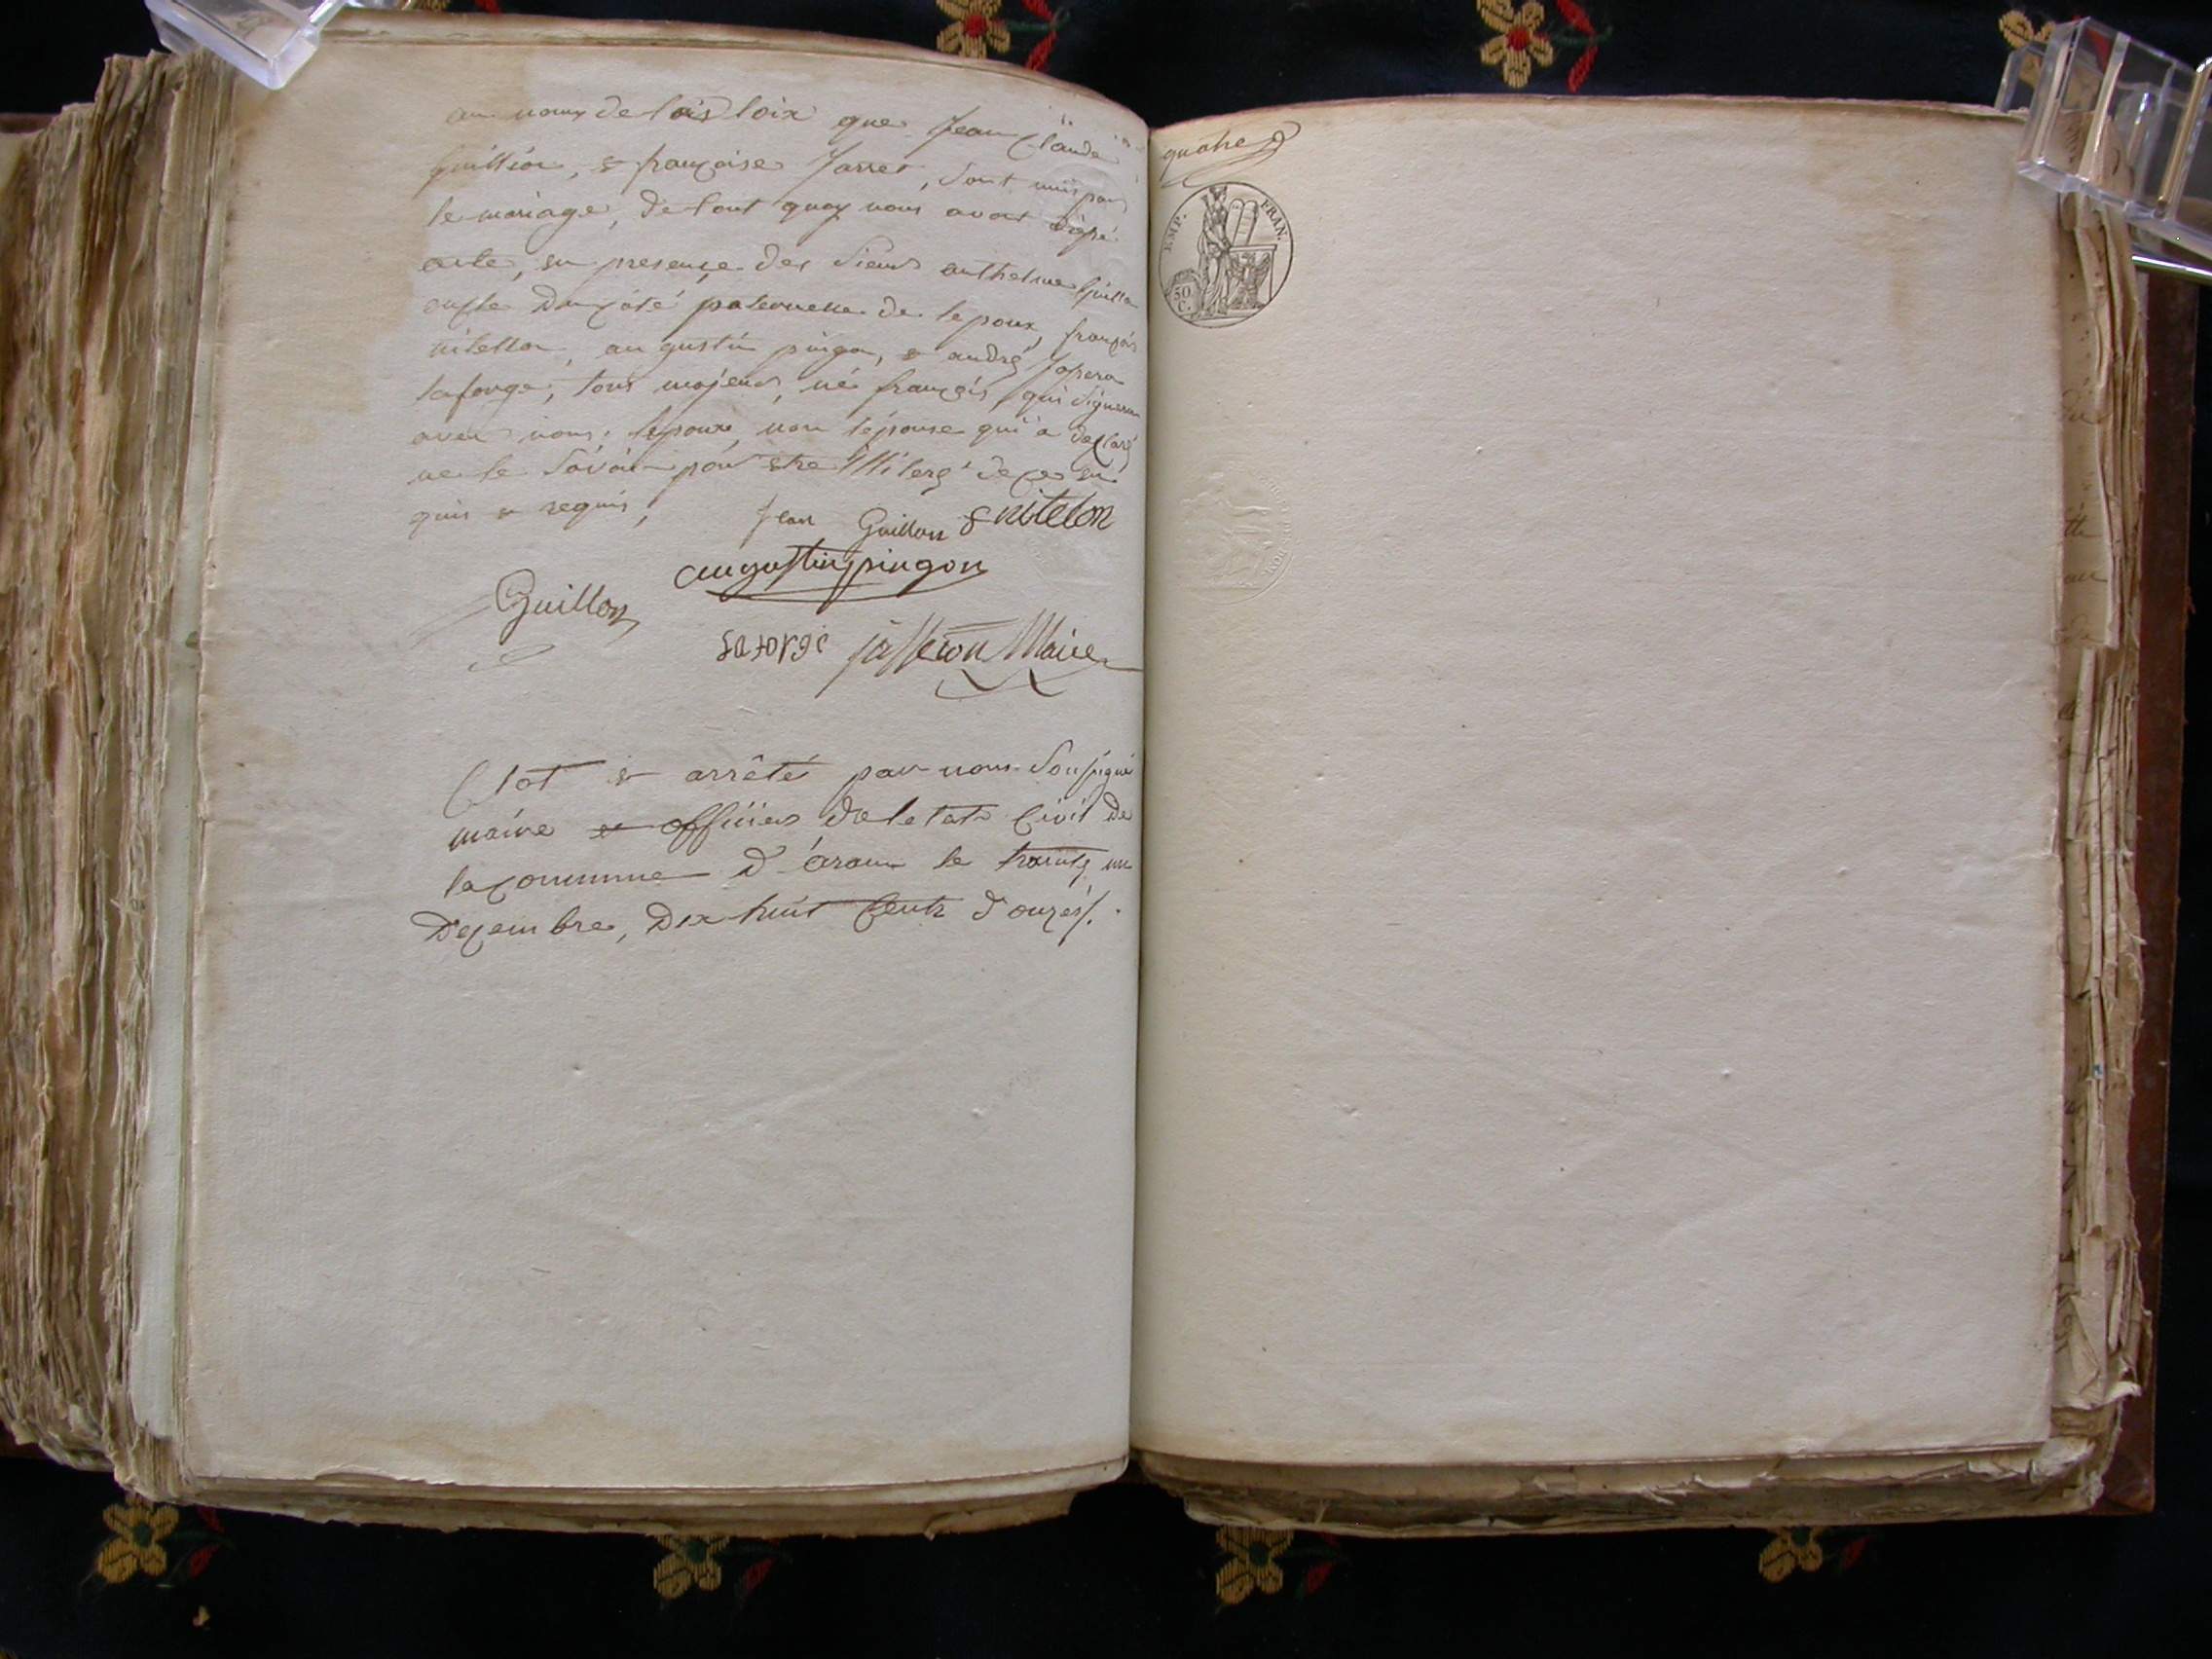 au nom de lois loix que Jean Claude
Guillion, & françoise Jarret, sont unis par
le mariage, de tout quoy nous avont
acte, en presence des sieurs anthelme Guillon
oncle du coté paternelle de lepoux, françois
nitellon, augustin pingon, & andré
laforge, tous majeurs, né françois, qui signeron
avec nous, lepoux, non l'épouse qui a declaré
ne le savoir pour etre illiteré de ce en
quis & requis,
Jean Guillon f nitelon
augustin pingon
Guillon
laforge jasseron Maire
Clot & arrêté par nous soussigné
maire & officier de letat Civil de
la commune d'aran le trante un
Decembre, Dix huit Cents d'ouze/.
quatre
EMP. FRAN.
50
C.